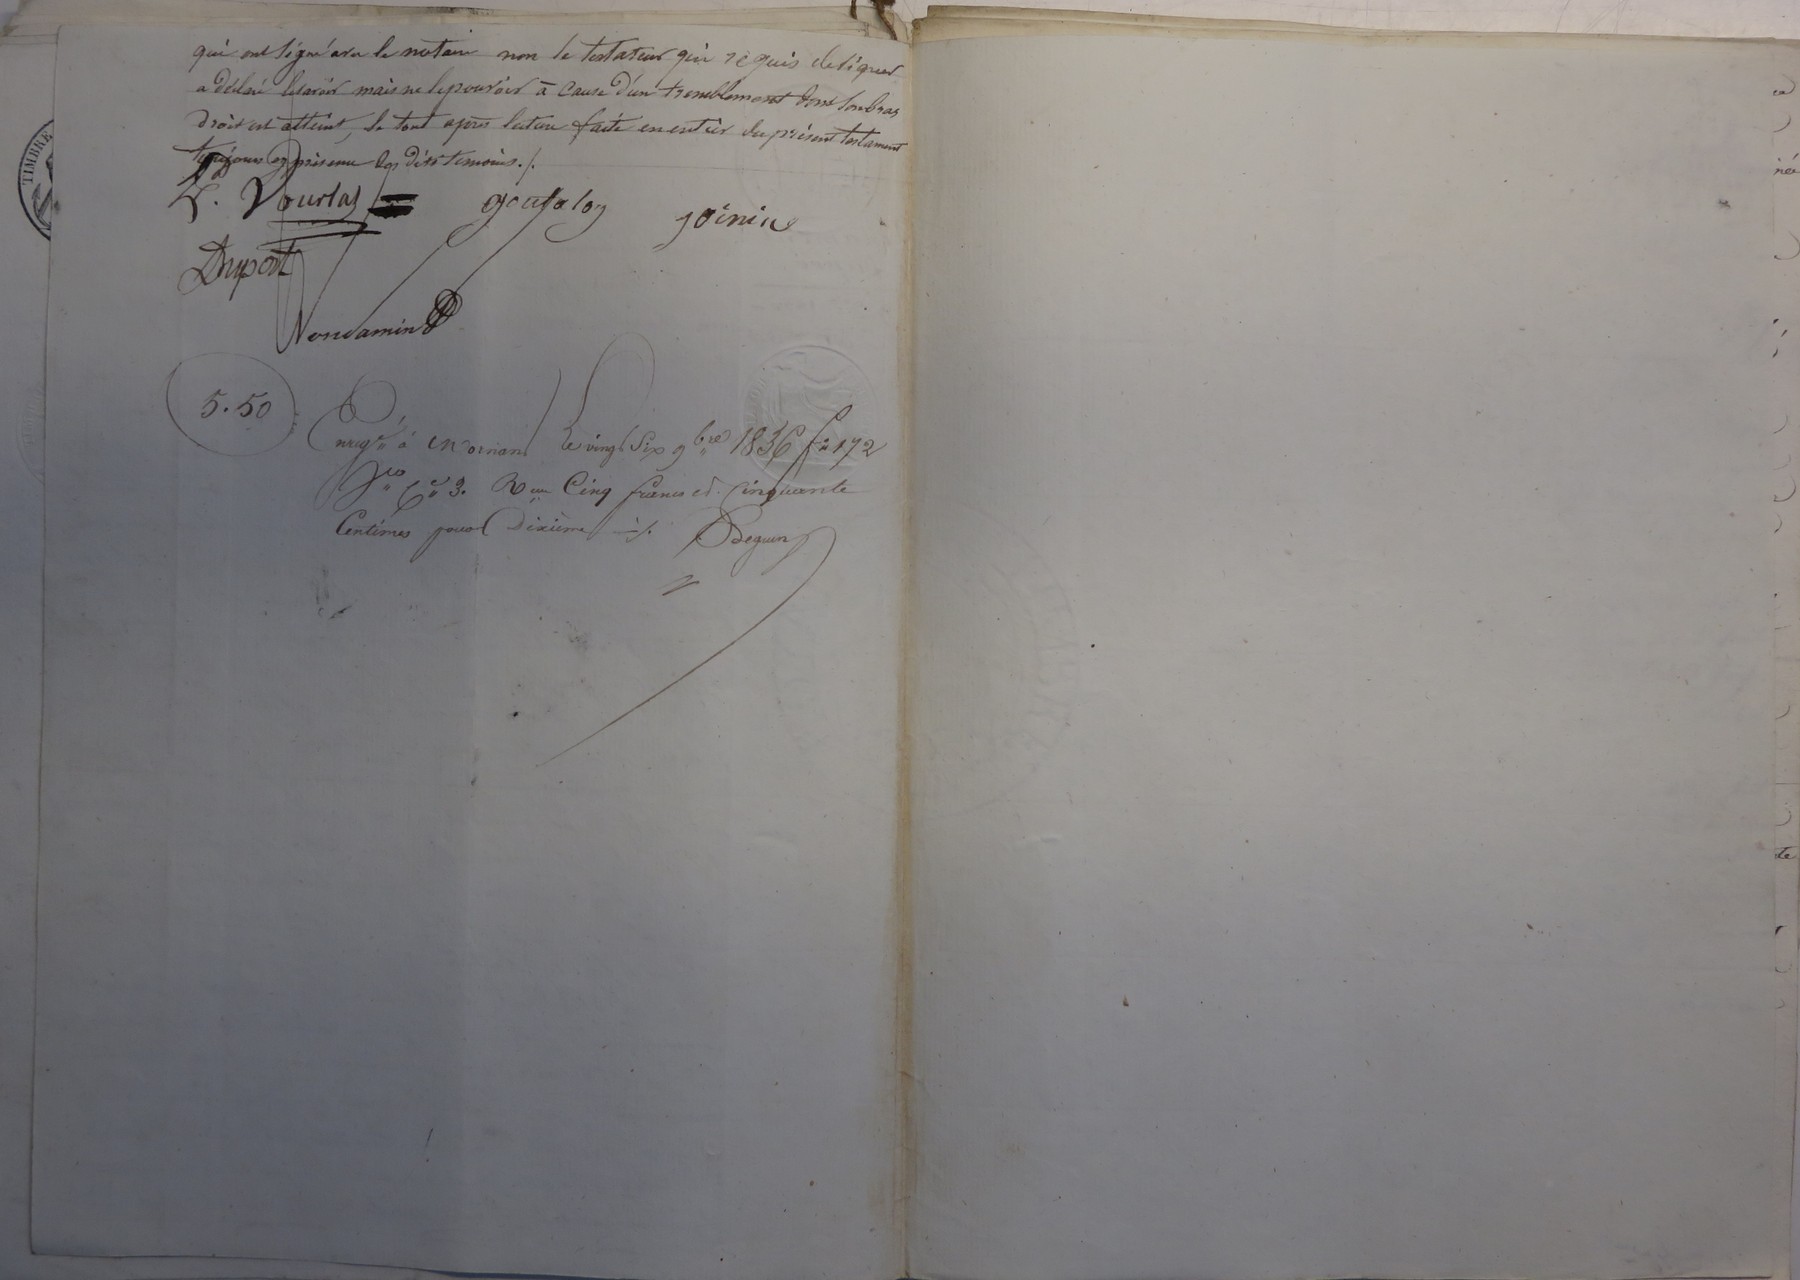 qui ont signé avec le notaire non le testateur qui requis de signer
a déclaré le savoir mais ne le pouvoir à cause d'un tremblement dont son bras
droit est atteint, le tout après lecture faite en entier du présent testament
toujours en présence des dits temoins ./.
Vourlat goutaloy joinin
Dupont
Condamin
5.50
Enreg.ré à Mornant le vingt six 9bre 1836 f° 172
V° C.e 3. R eçu Cinq francs et Cinquante
Centimes pour Dixième ./. Seguin
TIMBRE